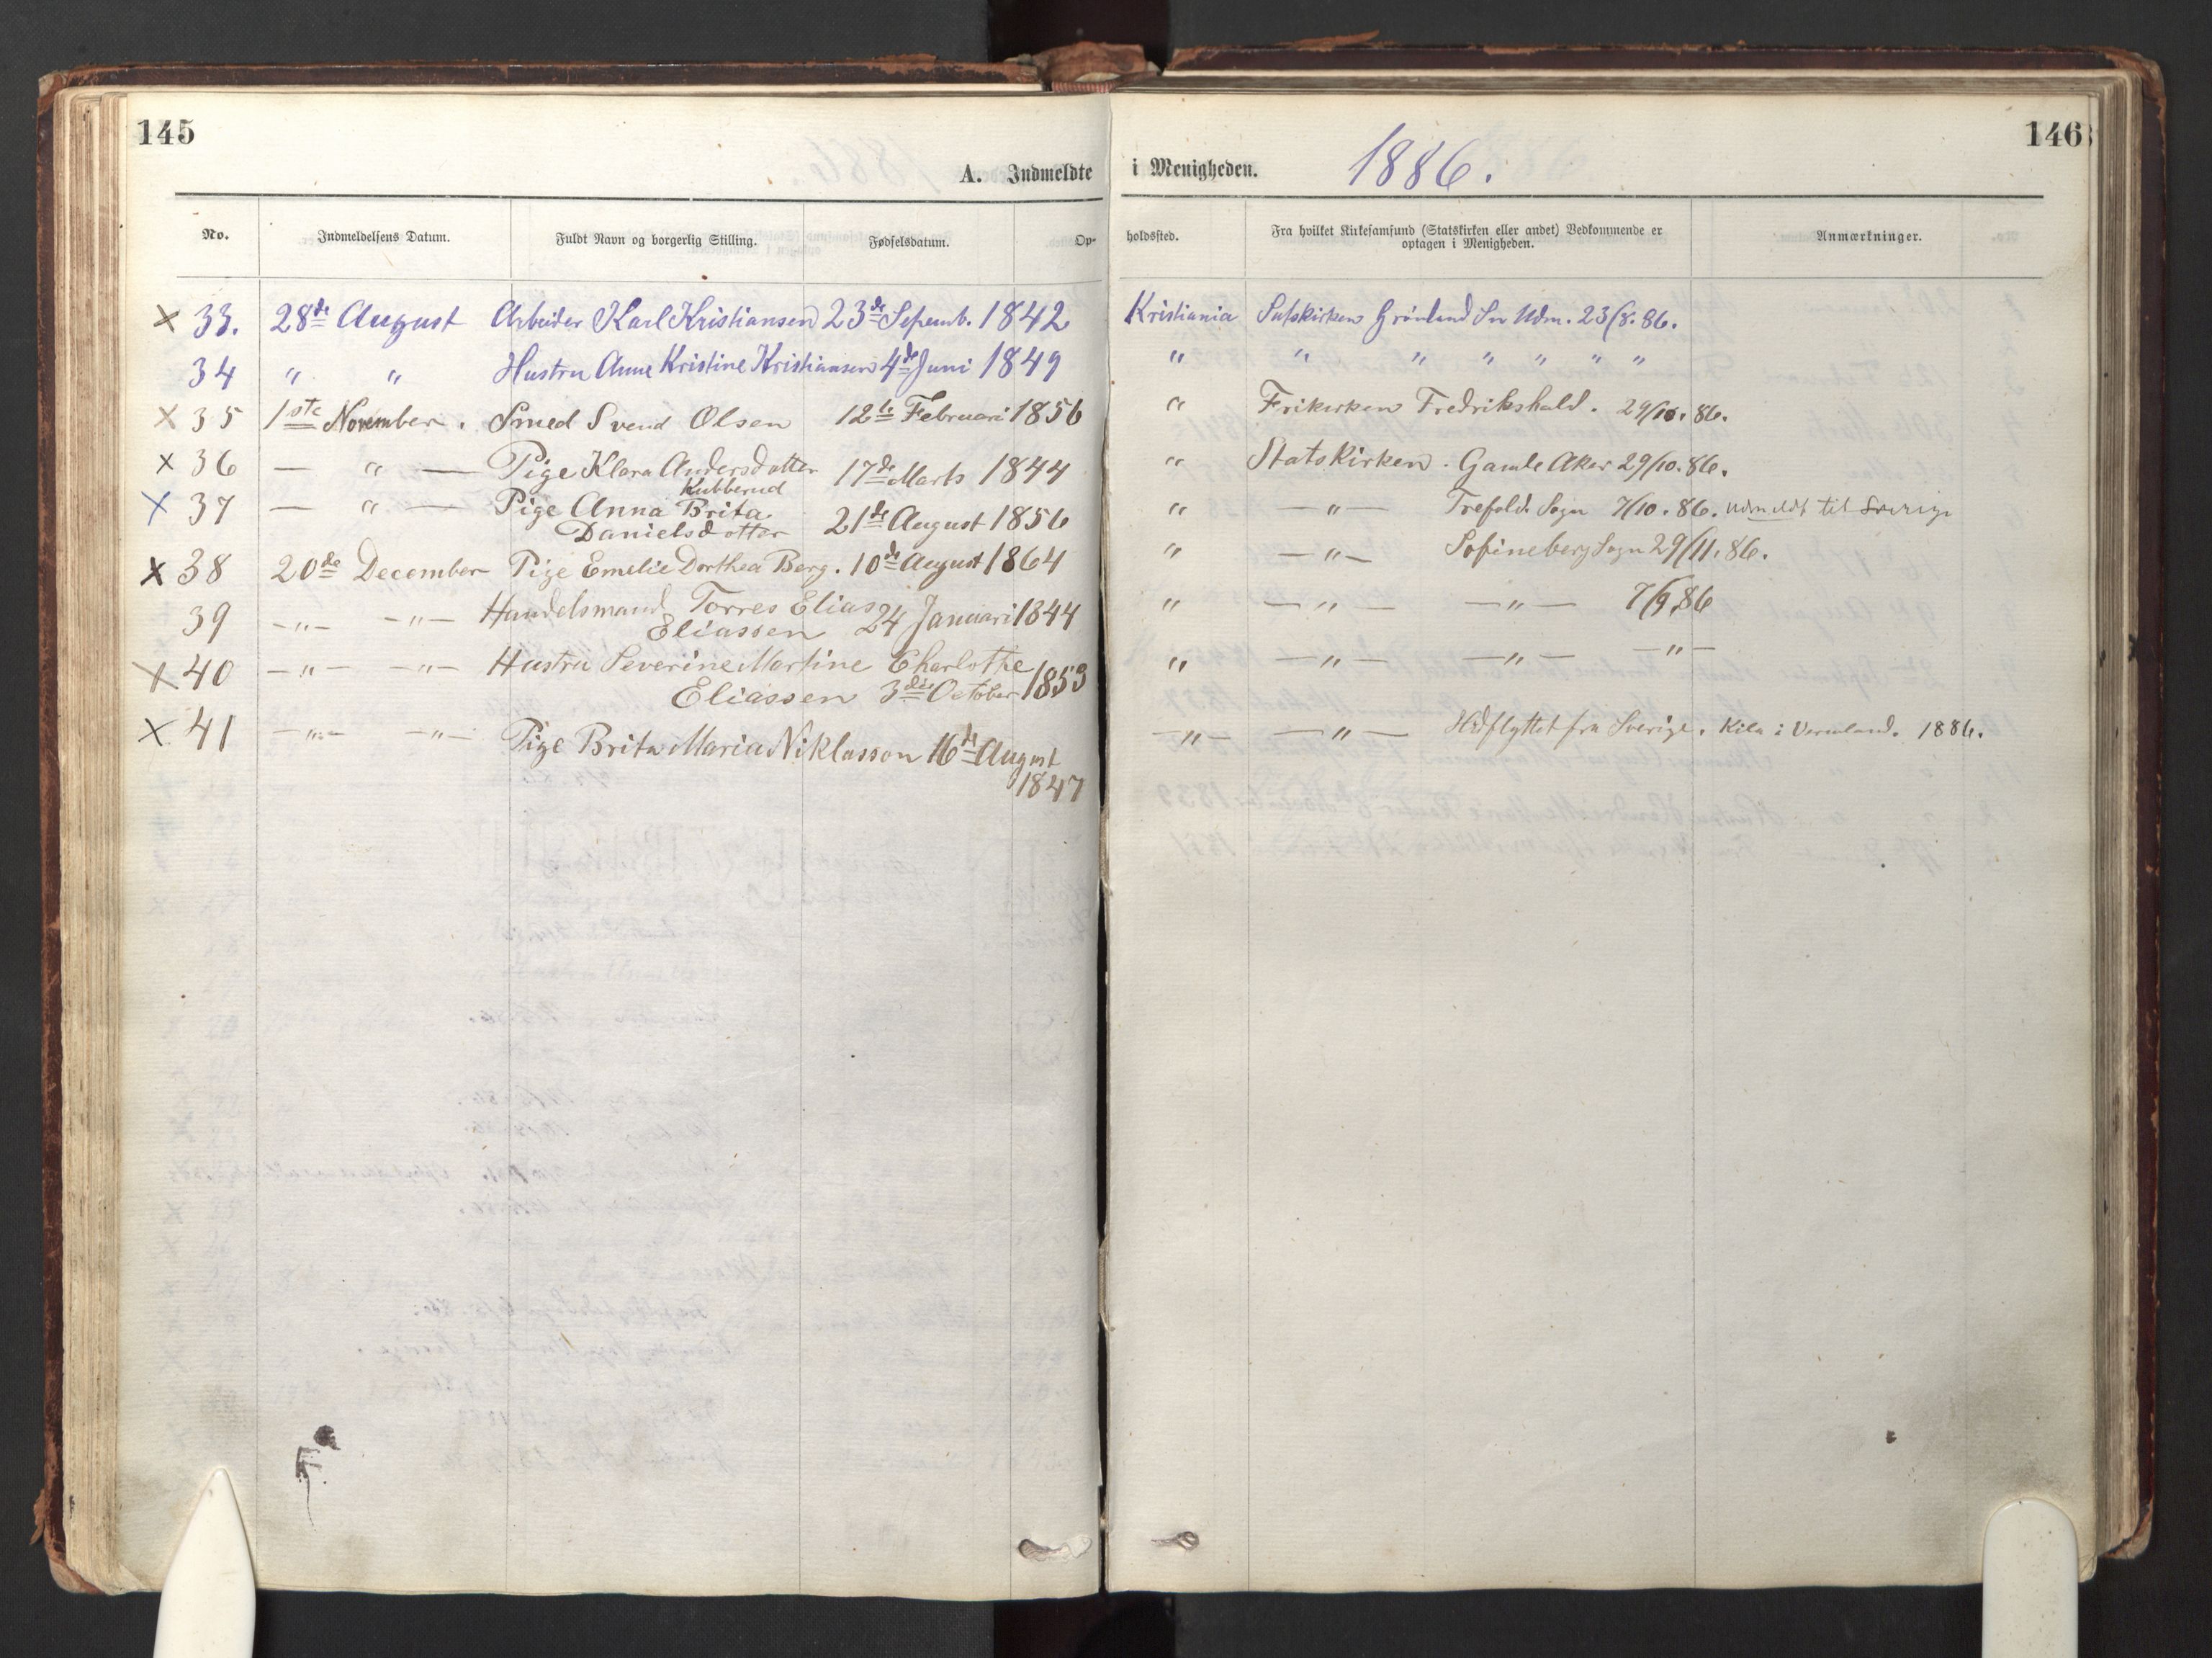 145
146
A. Indmeldte i Menigheden. 1886.
No. Indmeldelsens Datum. Fuldt Navn og borgerlig Stilling. Fødselsdatum. Opholdssted. Fra hvilket Kirkesamfund (Statskirken eller andet) Vedkommende er Anmærkninger.
optagen i Menigheden.
x 33. 28de August Arbeider Karl Kristiansen 23de Septemb. 1842 Kristiania Statskirken Grönland Sn Udm. 23/8. 86.
34 " " Hustru Anne Kristine Kristiansen 4de Juni 1849 " " " " " " "
x 35 1ste November. Smed Svend Olsen 12te Februari 1856 " Frikirken Fredrikshald. 29/10. 86.
x 36 — " — Pige Klara Andersdotter 17de Marts 1844 " Statskirken. Gamle Aker 29/10. 86.
Kubberud
x 37 — " — Pige Anna Brita 21de August 1856 " — " — Trefold. Sogn 7/10. 86. udmeldt til Sverige
Danielsdotter
x 38 20de December Pige Emelie Dorthea Berg. 10de August 1864 " — " — Sofineberg Sogn 29/11. 86.
39 — " — — " — Handelsmand Torres Elias 24 Januari 1844 " — " — — " — 7/9. 86
Eliassen
x 40 — " — — " — Hustru Severine Martine Charlotte " — " — — " — — " —
Eliassen 3die October 1853
x 41 — " — — " — Pige Brita Maria Niklasson 16de August — " — — " — Hidflyttet fra Sverige. Kila i Vermland. 1886.
1847